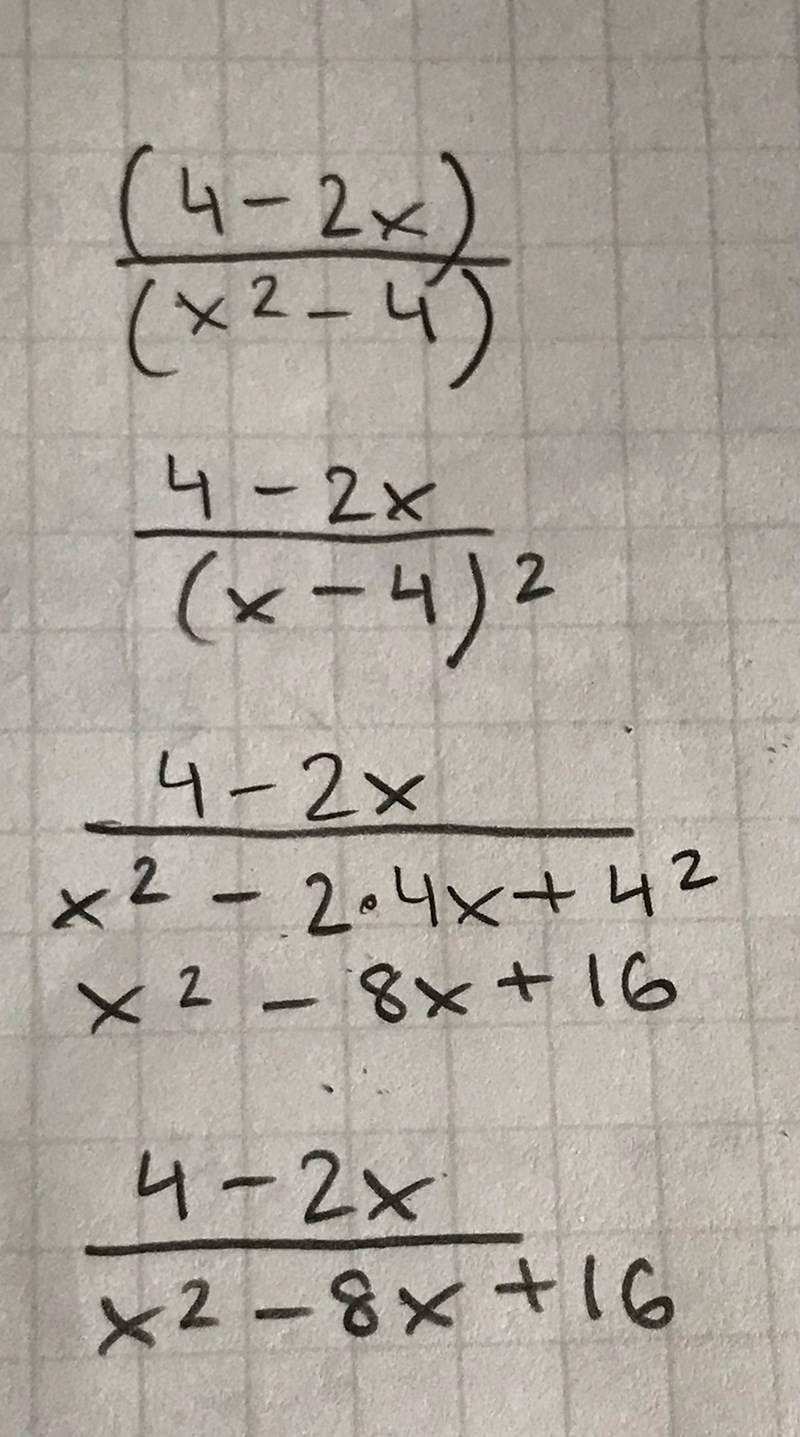 (4 - 2x)
(x² - 4)
4 - 2x
(x - 4)²
4 - 2x
x² - 2·4x + 4²
x² - 8x + 16
4 - 2x
x² - 8x + 16